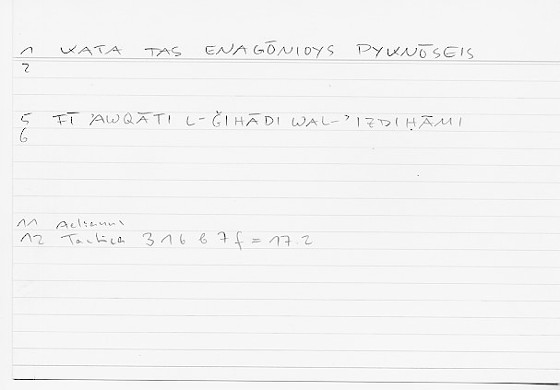 1 KATA TAS ENAGŌNIOYS PYKNŌSEIS
2
5 FĪ ʾAWQĀTI L-ǦIHĀDI WAL-ʾIZDIḤĀMI
6
11 Aeliani
12 Tactica 316 b 7 f = 17.2